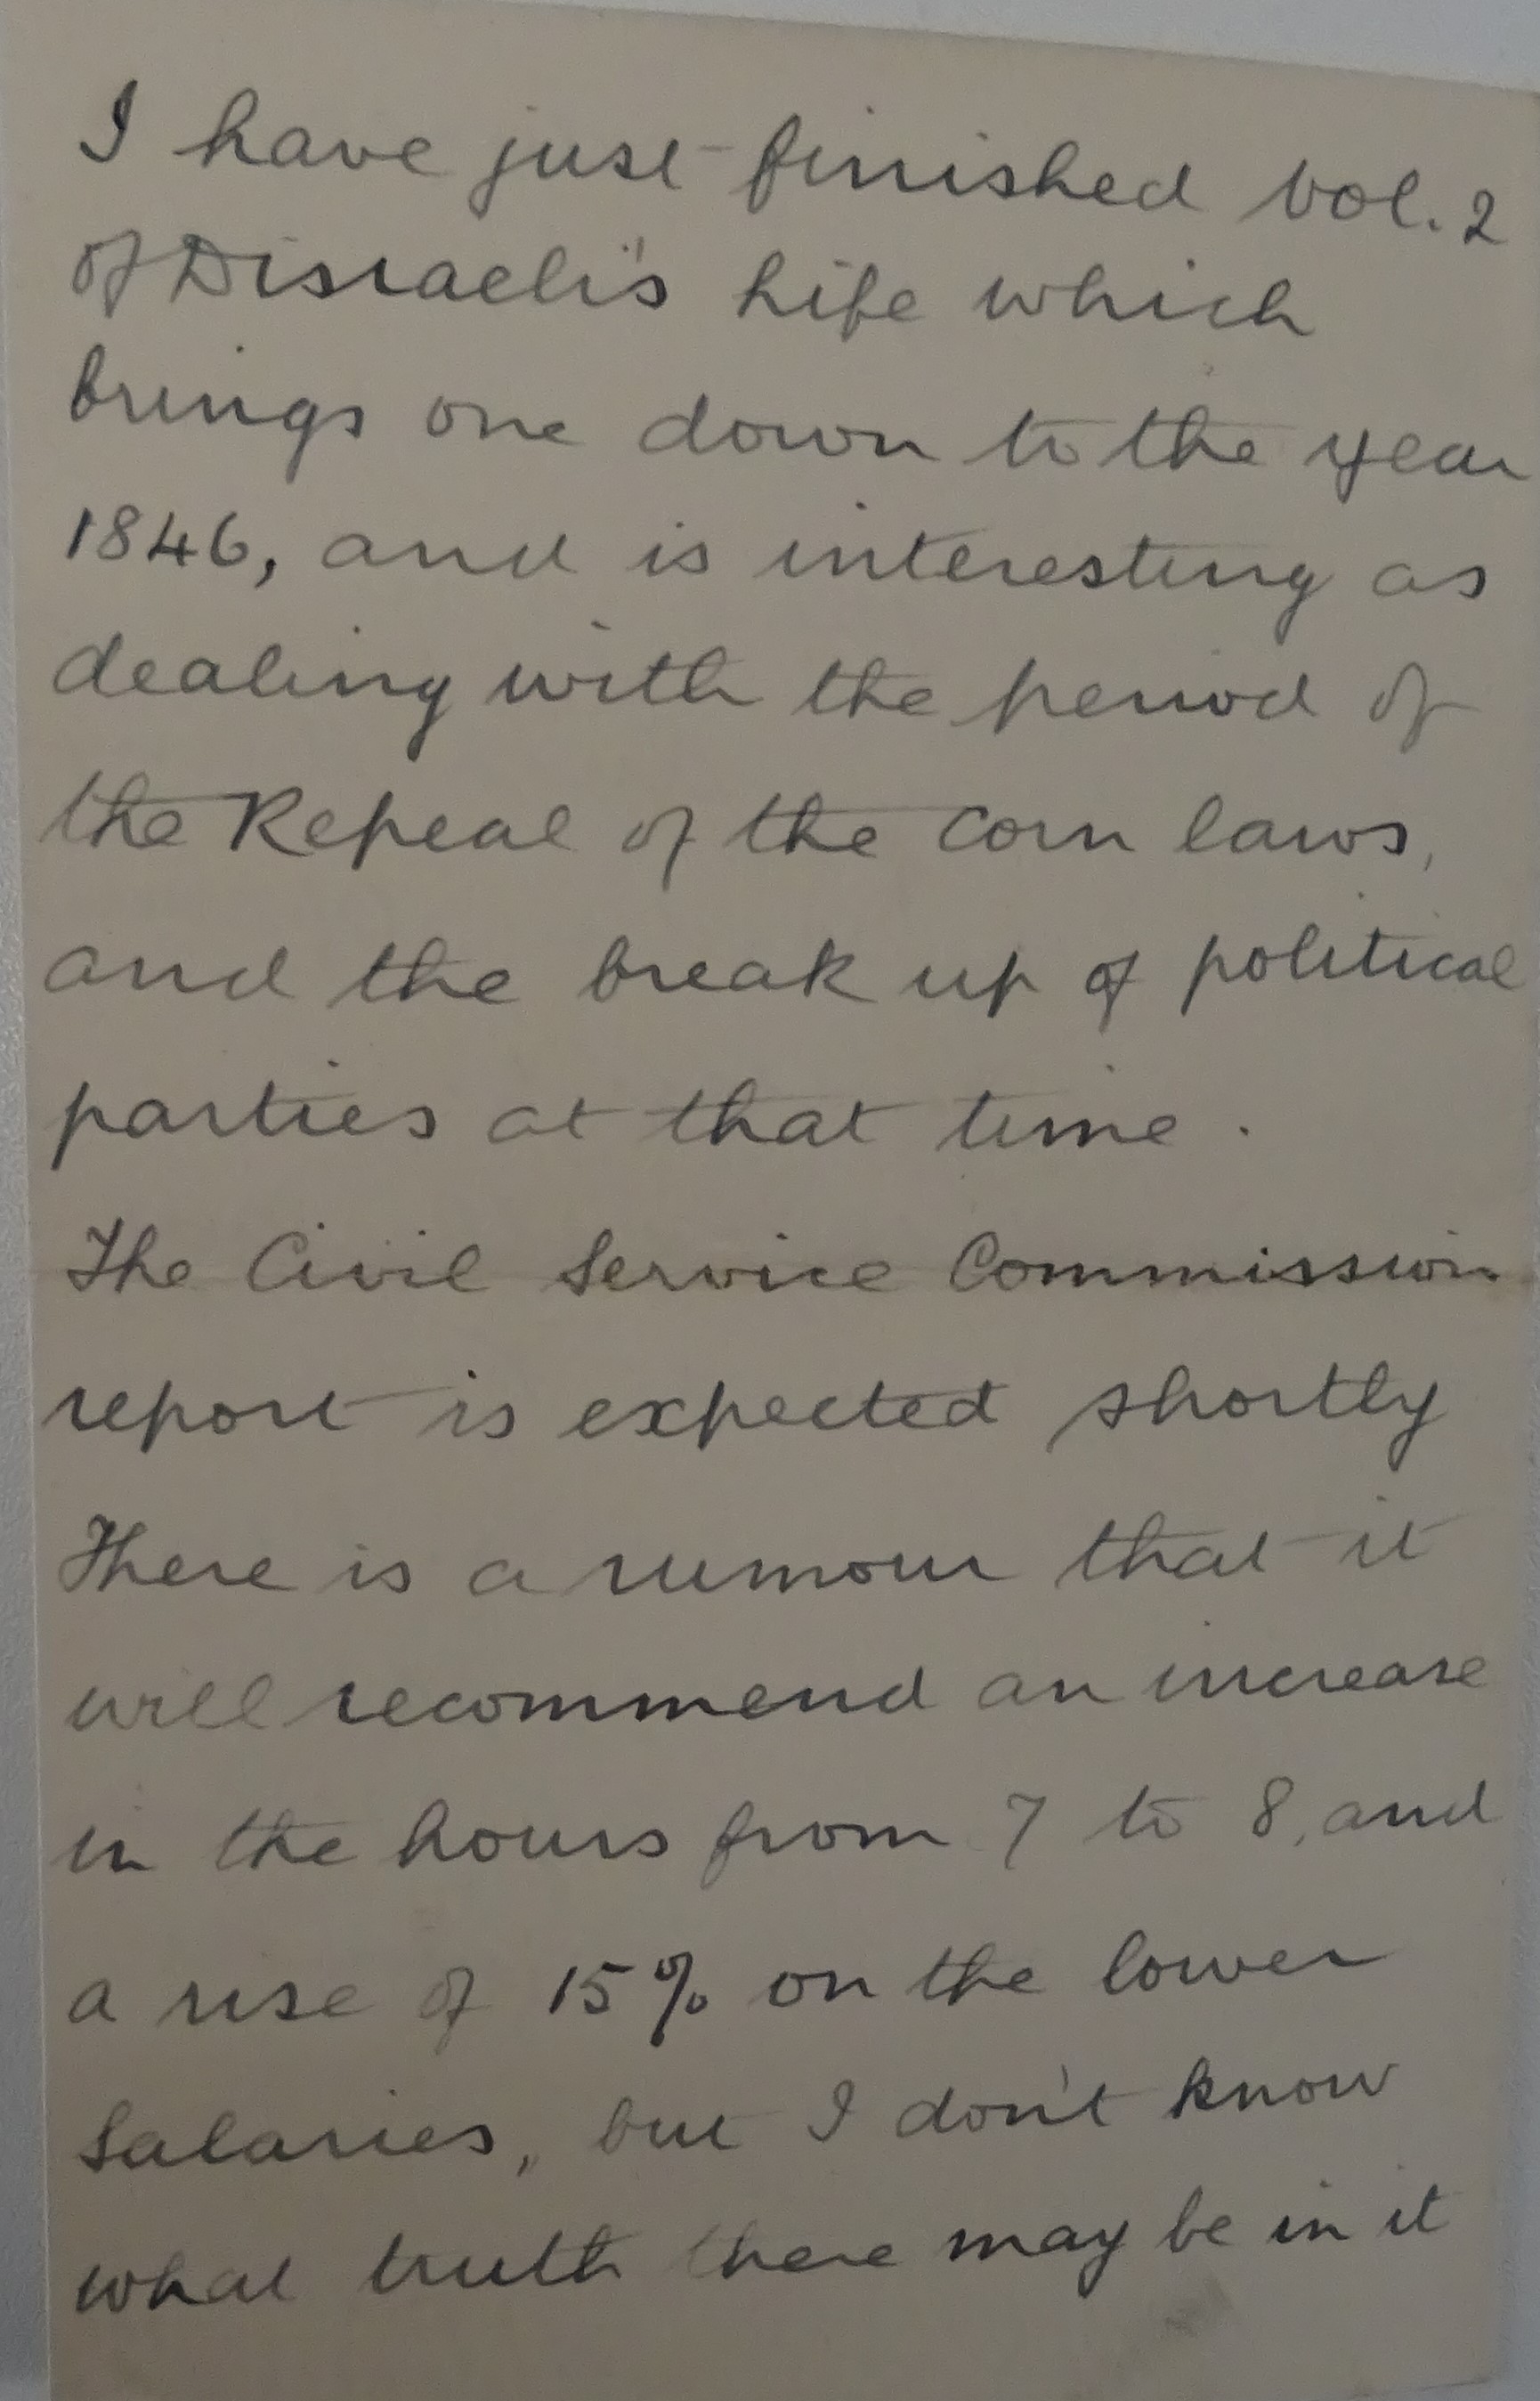 I have just finished Vol. 2
of Disraeli's Life which
brings one down to the year
1846, and is interesting as
dealing with the period of
the Repeal of the Corn laws,
and the break up of political
parties at that time.
The Civil Service Commission
report is expected shortly
There is a rumour that it
will recommend an increase
in the hours from 7 to 8, and
a rise of 15% on the lower
Salaries, but I don't know
what truth there may be in it